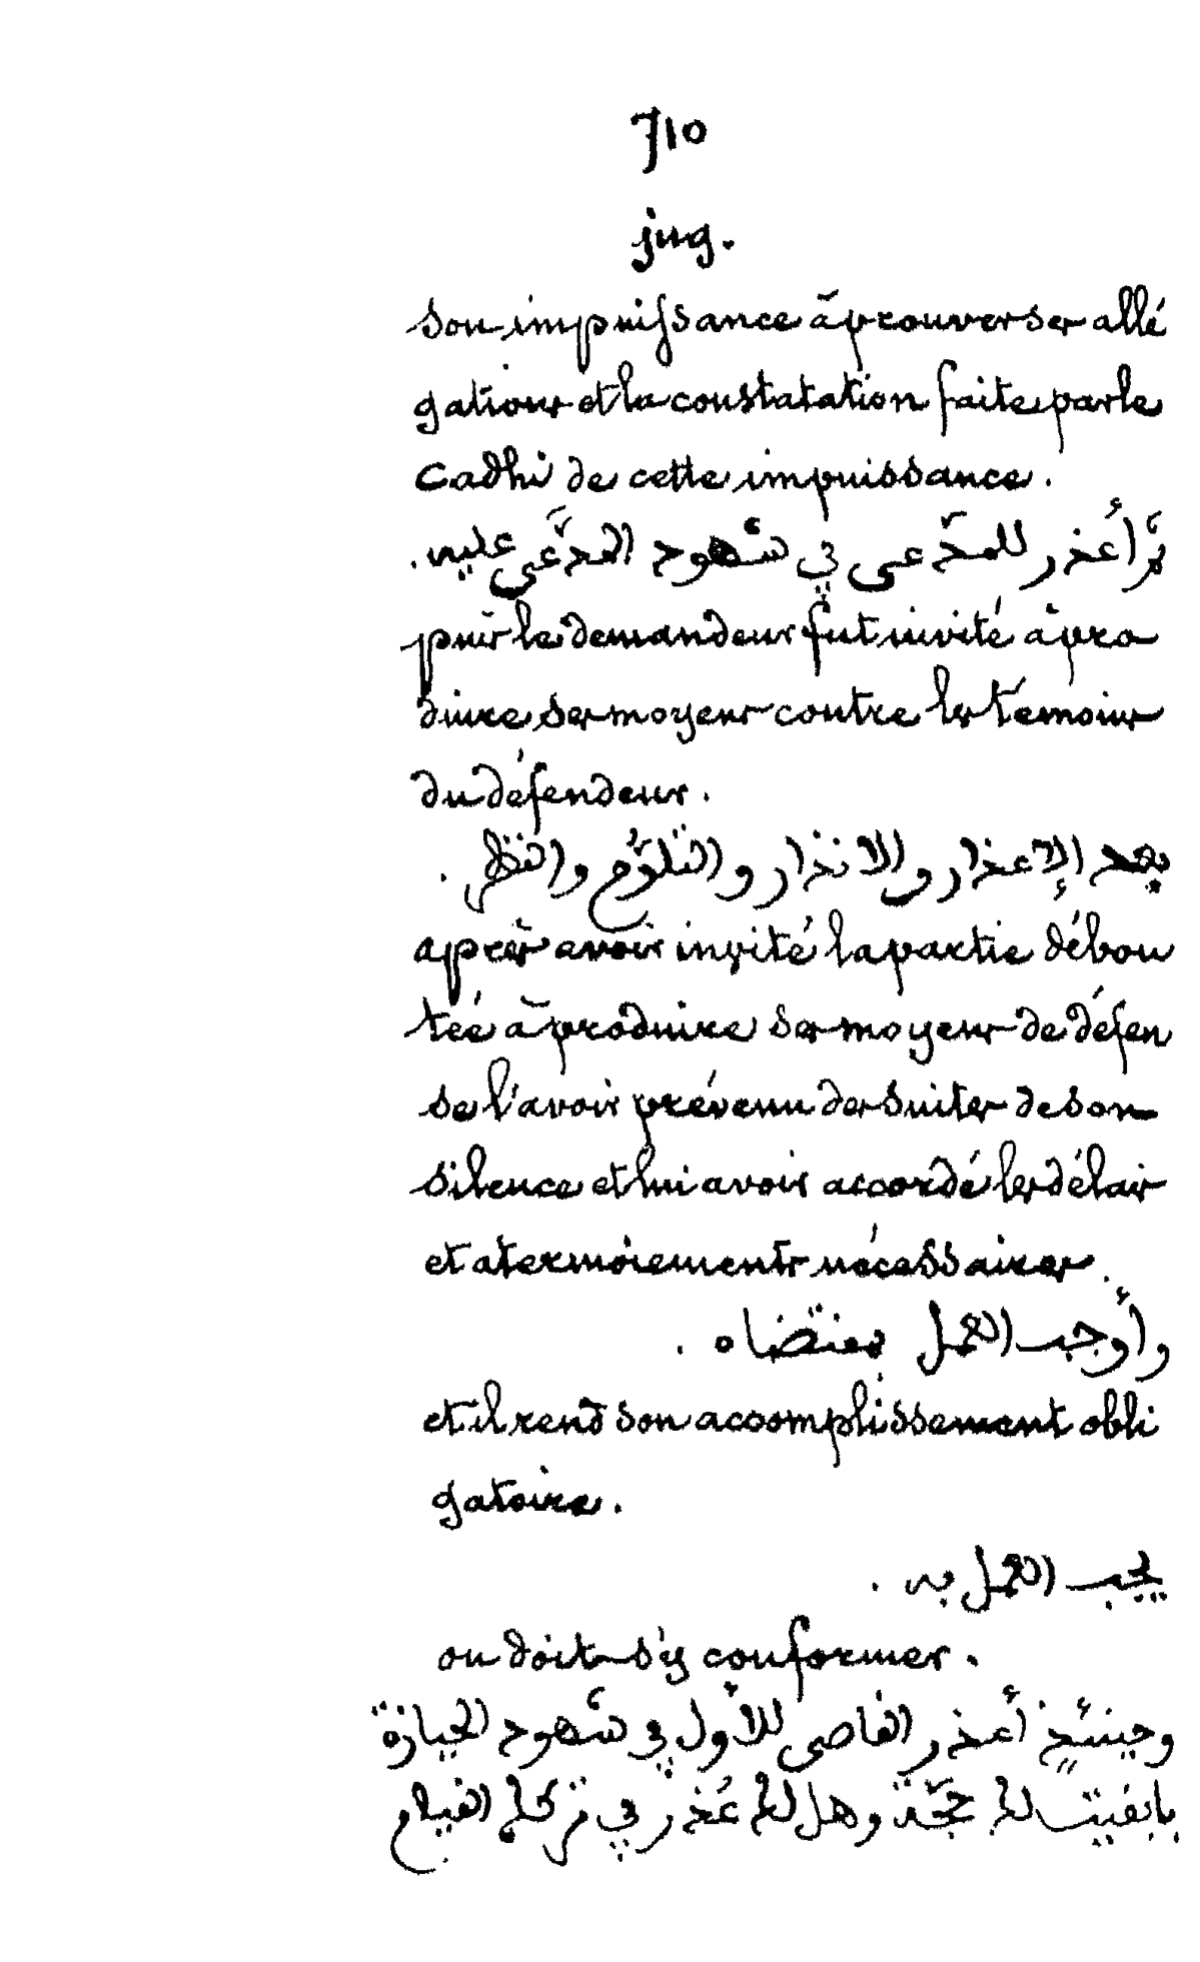 710
jug.
son impuissance à prouver ses allé
gations et la constatation faite par le
Cadhi de cette impuissance.
ثمّ أُعذر للمدّعى في شهود المدّعَى عليه.
puis le demandeur fut invité à pro
duire ses moyens contre les témoins
du défendeur.
بعد الإعذار والانذار والتلوُّم والنظر.
après avoir invité la partie débou
tée à produire ses moyens de défen
se l'avoir prévenu des suites de son
silence et lui avoir accordé les délais
et atermoiements nécessaires.
وأوجب العمل بمقتضاه.
et il rend son accomplissement obli
gatoire.
يجب العمل به.
on doit s'y conformer.
وحينئذٍ أعذر القاضى للأول في شهود الحيازة
بابقيت له حجّة وهل له عُذر في تركه القيام